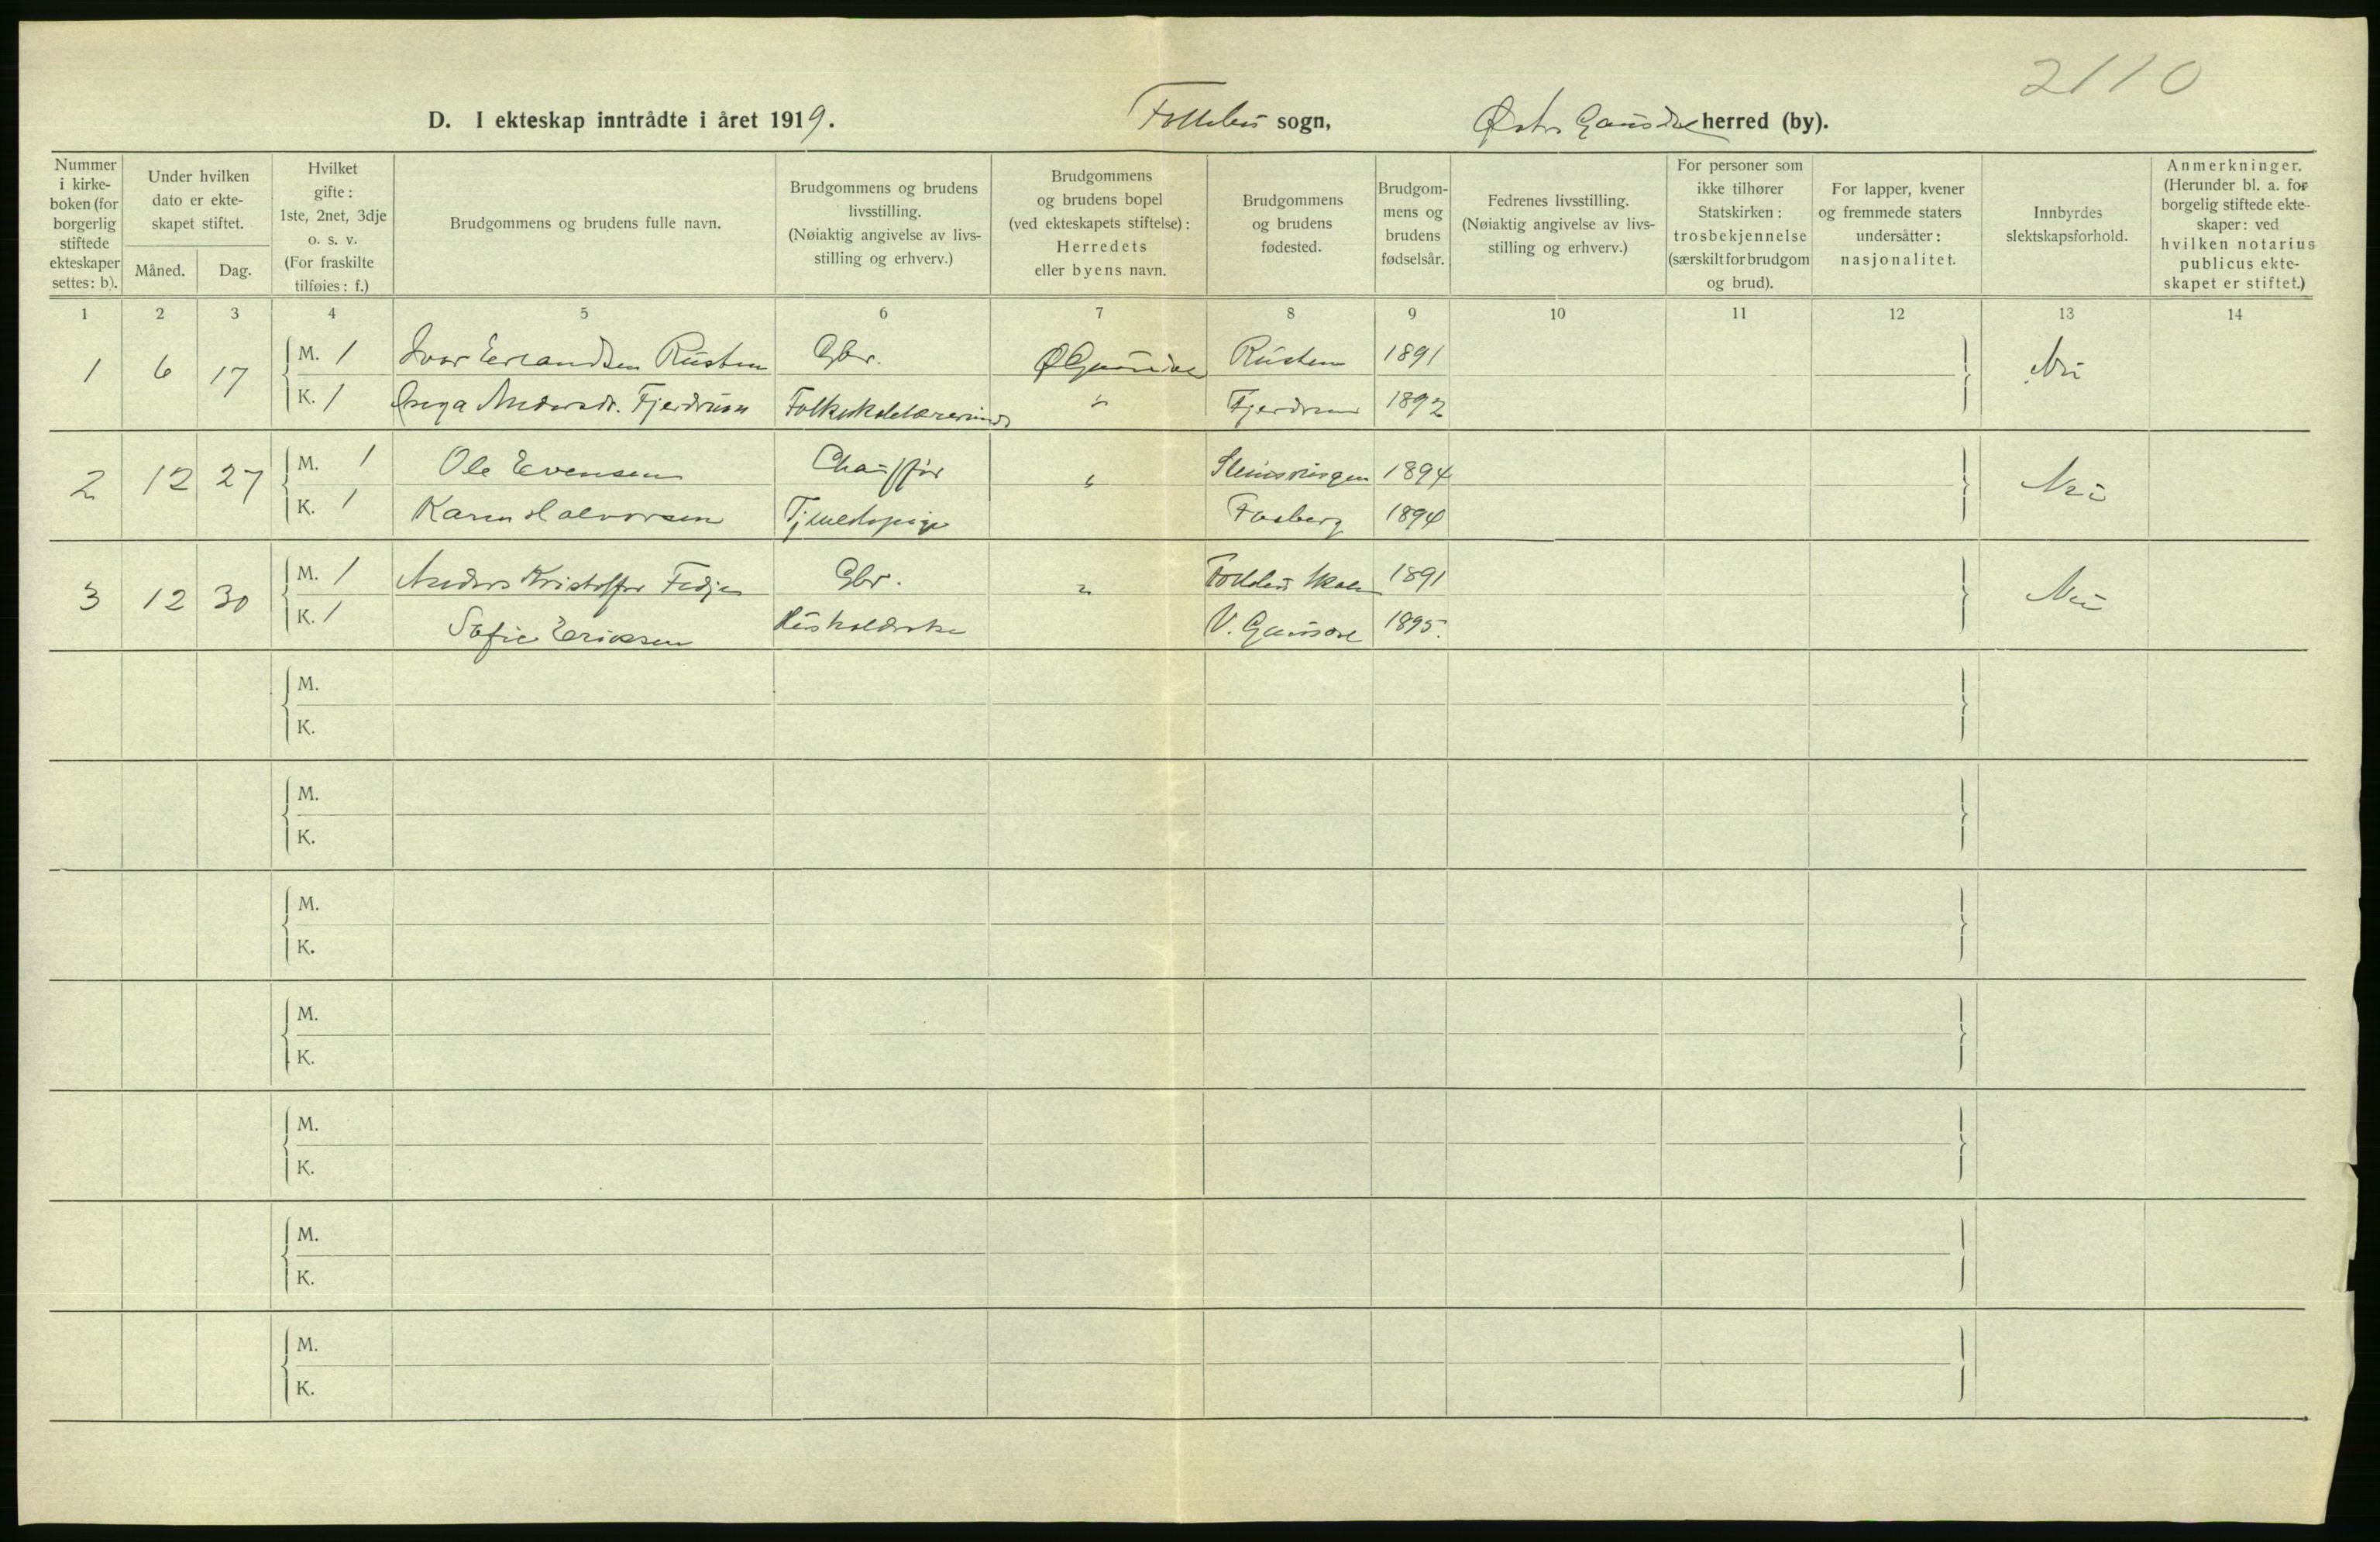 2110
D. I ekteskap inntrådte i året 1919. Follebu sogn, Østre Gausdal herred (by).
Nummer i kirke- boken (for borgerlig stiftede ekteskaper settes: b).
Under hvilken dato er ekte- skapet stiftet.
Måned. Dag.
Hvilket gifte: 1ste, 2net, 3dje o. s. v. (For fraskilte tilføies: f.)
Brudgommens og brudens fulle navn.
Brudgommens og brudens livsstilling. (Nøiaktig angivelse av livs- stilling og erhverv.)
Brudgommens og brudens bopel (ved ekteskapets stiftelse): Herredets eller byens navn.
Brudgommens og brudens fødested.
Brudgom- mens og brudens fødselsår.
Fedrenes livsstilling. (Nøiaktig angivelse av livs- stilling og erhverv.)
For personer som ikke tilhører Statskirken: trosbekjennelse (særskilt for brudgom og brud).
For lapper, kvener og fremmede staters undersåtter: nasjonalitet.
Innbyrdes slektskapsforhold.
Anmerkninger. (Herunder bl. a. for borgelig stiftede ekte- skaper: ved hvilken notarius publicus ekte- skapet er stiftet.)
1 2 3 4 5 6 7 8 9 10 11 12 13 14
1 6 17 M. 1 Ivar Erlandsen Rusten Gbr. Ø Gausdal Rusten 1891 Nei
K. 1 Inga Andersdr. Fjerdrum Folkskolelærerinde " Fjerdrum 1892
2 12 27 M. 1 Ole Evensen Chauffør " 1894 Nei
K. 1 Karen Halvorsen Tjenestepige Fosberg 1894
3 12 30 M. 1 Anders Kristoffer Fedje Gbr. " Follebu Skole 1891 Nei
K. 1 Sofie Eriksen Husholderske V. Gausdal 1895.
M.
K.
M.
K.
M.
K.
M.
K.
M.
K.
M.
K.
M.
K.